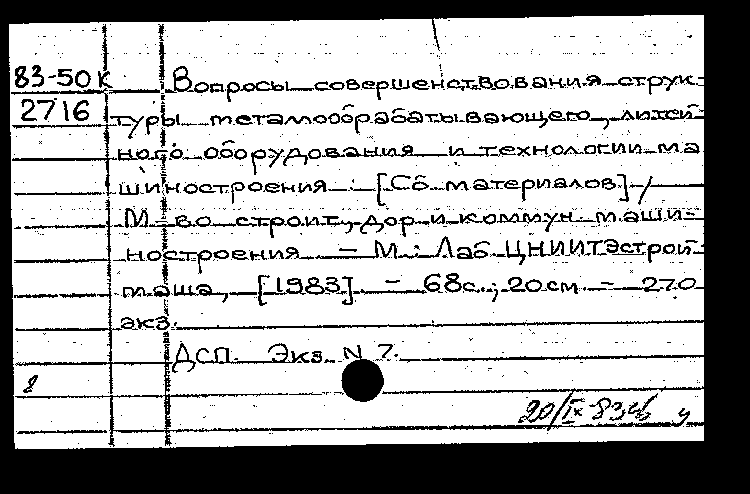 83-50к Вопросы совершенствования струк-
2716 туры металообрабатывающего, литей
ного оборудования и технологии ма
шиностроения : [Сб материалов] /
М-во строит., дор и коммун. маши-
ностроения - М. : Лаб ЦНИИТЭстрой
маша, [1983]. - 68с.; 20см - 270
экз.
ДСП. Экз. N 7.
2
20/IX-83